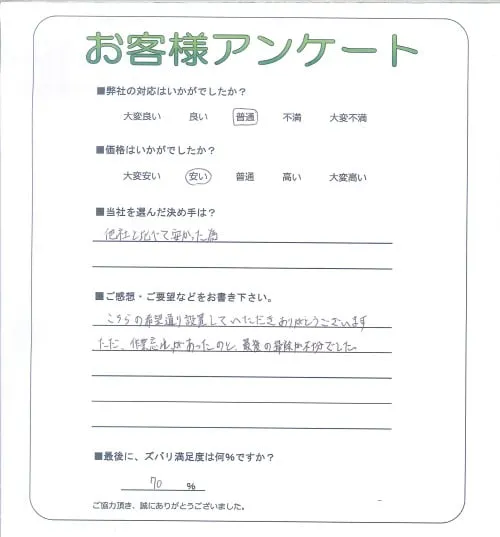 お客様アンケート
■弊社の対応はいかがでしたか？
大変良い 良い 普通 不満 大変不満
■価格はいかがでしたか？
大変安い 安い 普通 高い 大変高い
■当社を選んだ決め手は？
他社と比べて安かった為
■ご感想・ご要望などをお書き下さい。
こちらの希望通り設置していただきありがとうございます
ただ、作業忘れがあったのと、最後の掃除が不十分でした
■最後に、ズバリ満足度は何％ですか？
70 ％
ご協力頂き、誠にありがとうございました。